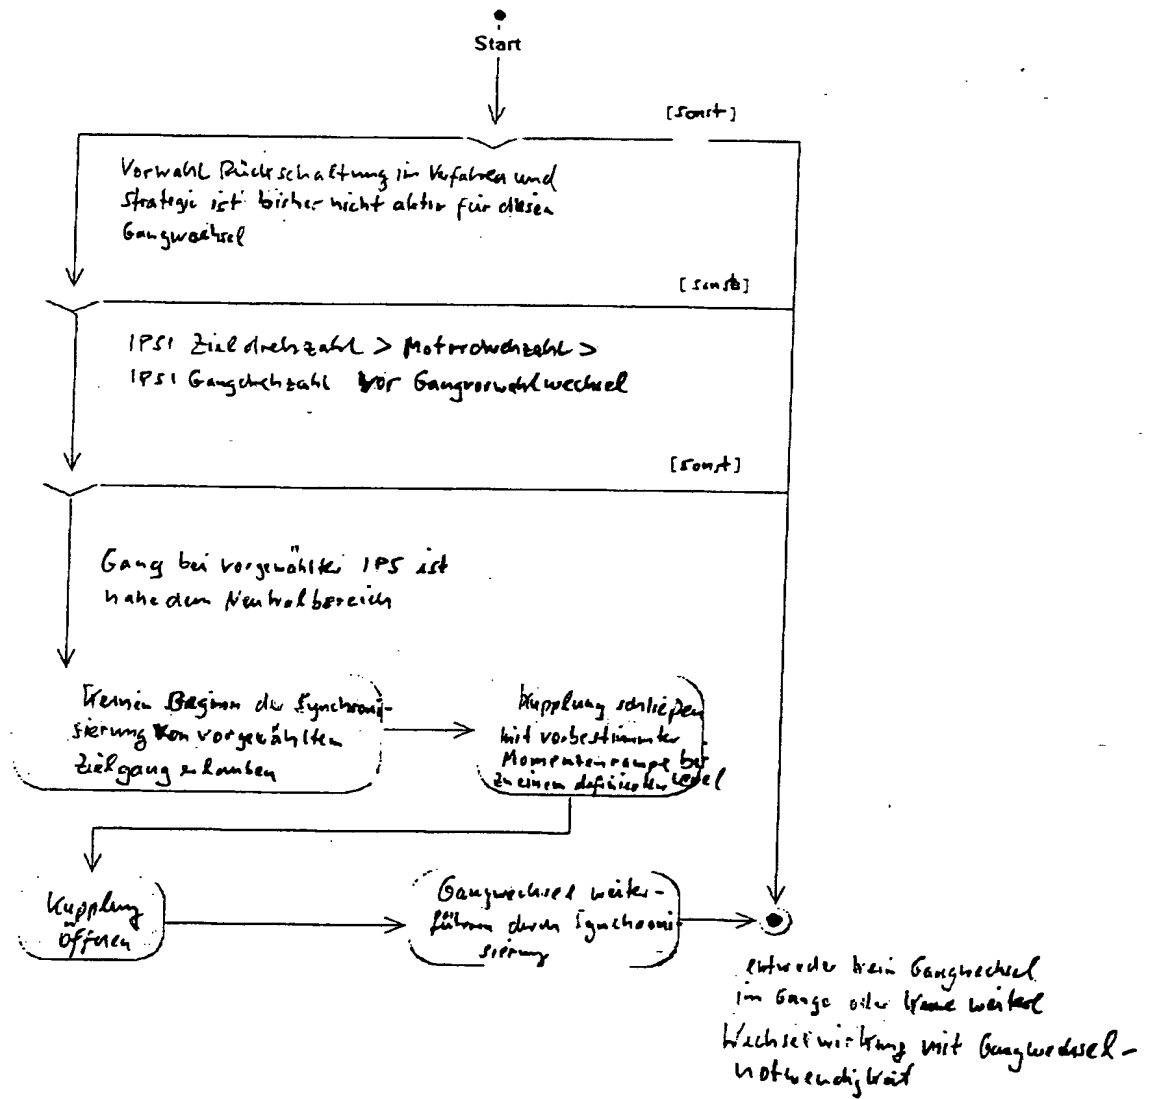 Start
[sonst]
Vorwahl Rückschaltung im Verfahren und
Strategie ist bisher nicht aktiv für diesen
Gangwechsel
[sonst]
IPSI Zieldrehzahl > Motordrehzahl >
IPSI Gangdrehzahl vor Gangvorwahlwechsel
[sonst]
Gang bei vorgewählter IPS ist
nahe dem Neutralbereich
keinen Beginn der Synchroni-
sierung von vorgewählten
Zielgang erlauben
Kupplung schließen
mit vorbestimmter
Momentenrampe bis
zu einem definierten Level
Kupplung
öffnen
Gangwechsel weiter-
führen durch Synchroni-
sierung
entweder kein Gangwechsel
im Gange oder keine weitere
Wechselwirkung mit Gangwechsel-
notwendigkeit